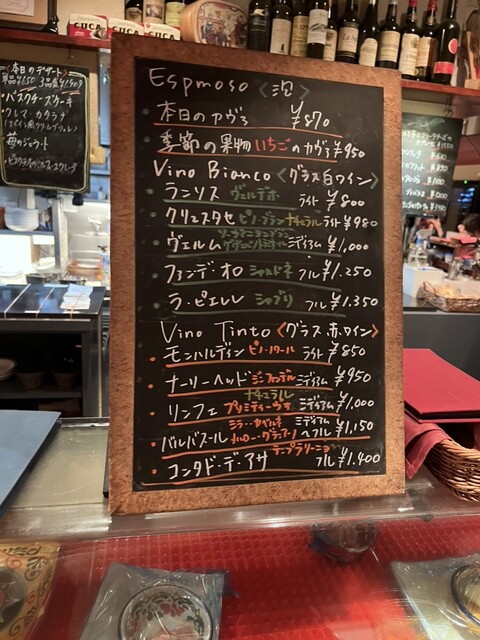 Espmoso 〈泡〉
本日のカヴァ ¥870
季節の果物いちごのカヴァ ¥950
Vino Bianco〈グラス白ワイン〉
ランリス ヴェルデホ ライト ¥800
クリエスタセ ピノ・ブラン ナチュラル ライト ¥980
ヴェルム ソーヴィニヨンブラン ゲヴェルツトラミネール ミディアム ¥1,000
フォンデ・オロ シャルドネ フル ¥1.250
ラ・ピエレレ シャブリ フル ¥1.350
Vino Tinto〈グラス赤ワイン〉
モンハルディン ピノ・ノワール ライト ¥850
ナーリーヘッド ジンファンデル ミディアム ¥950
リンフェ ナチュラル プリミティーヴォ ミディアム ¥1,000
バルバスール シラー・カベルネ メルロー・グラシアーノ ミディアム〜フル ¥1,150
コンタド・デ・アサ テンプラリーニョ フル ¥1.400
〈本日のデザート〉
単品¥650 3品盛¥1,490
・バスクチーズケーキ
・クレマ・カタラナ
(スペイン風クリームブリュレ)
・苺のジェラート
CUCA
CUCA